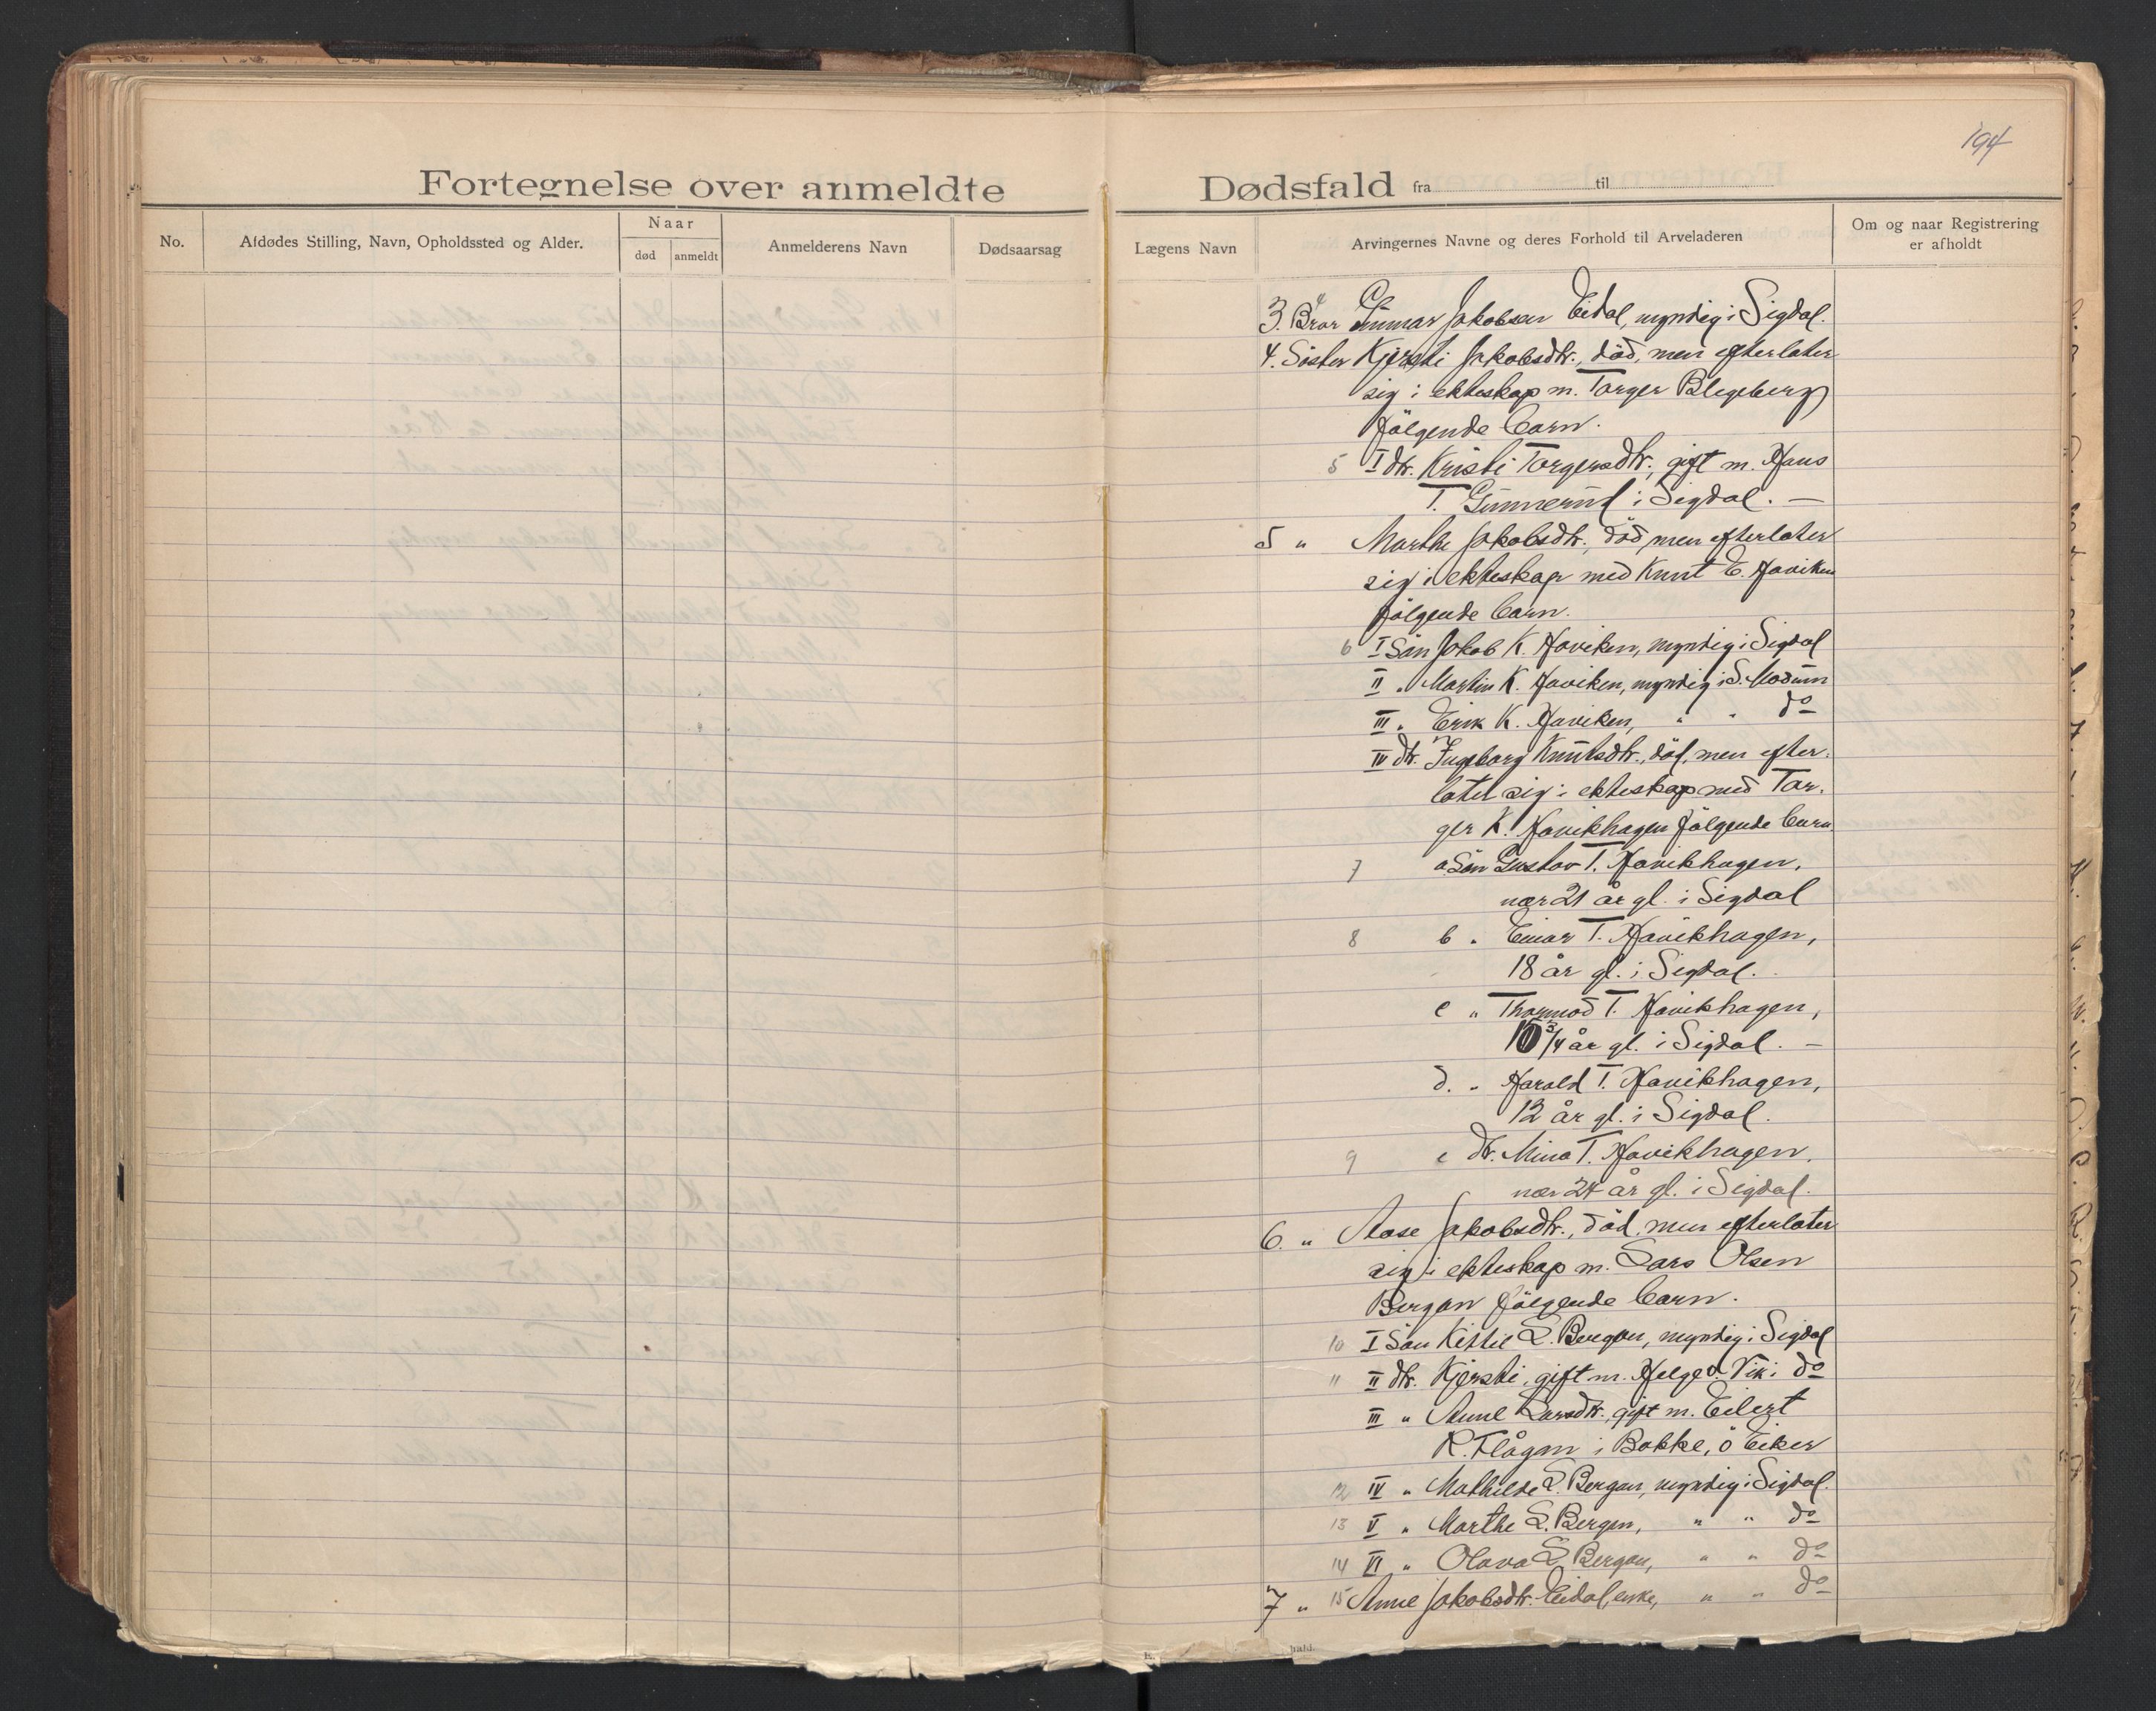 194
Fortegnelse over anmeldte Dødsfald fra til
No.
Afdødes Stilling, Navn, Opholdssted og Alder.
Naar
død
anmeldt
Anmelderens Navn
Dødsaarsag
Lægens Navn
Arvingernes Navne og deres Forhold til Arveladeren
Om og naar Registrering
er afholdt
3. Bror 4 Gunnar Jakobsen Eidal, myndig i Sigdal.
4. Söster Kjersti Jakobsdtr., död, men efterlater
sig i ekteskap m. Torger Blegeberg
fölgende barn.
5 I dtr. Kristi Torgersdtr., gift m. Hans
T. Gunnerud i Sigdal. —
5 " Marthe Jakobsdtr., död, men efterlater
sig i ekteskap med Knut E. Haviken
fölgende barn.
6 I Sön Jakob K. Haviken, myndig i Sigdal
II " Martin K. Haviken, myndig i S. Modum
III " Erik K. Haviken, " " do
IV dtr. Ingeborg Knutsdtr., död, men efter-
latet sig i ekteskap med Tor-
ger K. Havikhagen fölgende barn
7 a Sön Gustav T. Havikhagen,
nær 21 år gl. i Sigdal
8 b " Einar T. Havikhagen,
18 år gl. i Sigdal.
c " Thormod T. Havikhagen,
10 3/4 år gl. i Sigdal. —
d. " Harald T. Havikhagen,
12 år gl. i Sigdal.
9 e dtr. Mina T. Havikhagen,
nær 24 år gl. i Sigdal.
6. " Aase Jakobsdtr., död, men efterlater
sig i ekteskap m. Lars Olsen
Bergan fölgende barn.
10 I Sön Kittil L. Bergan, myndig i Sigdal
11 II dtr. Kjersti, gift m. Helge O. Vik i do
III " Anne Larsdtr., gift m. Eilert
R. Flågan i Bakke, ö Eiker
12 IV " Mathilde L. Bergan, myndig i Sigdal.
13 V " Marthe L. Bergan, " " do
14 VI " Olava L. Bergan, " " do
7 " 15 Anne Jakobsdtr. Eidal, enke, " " do